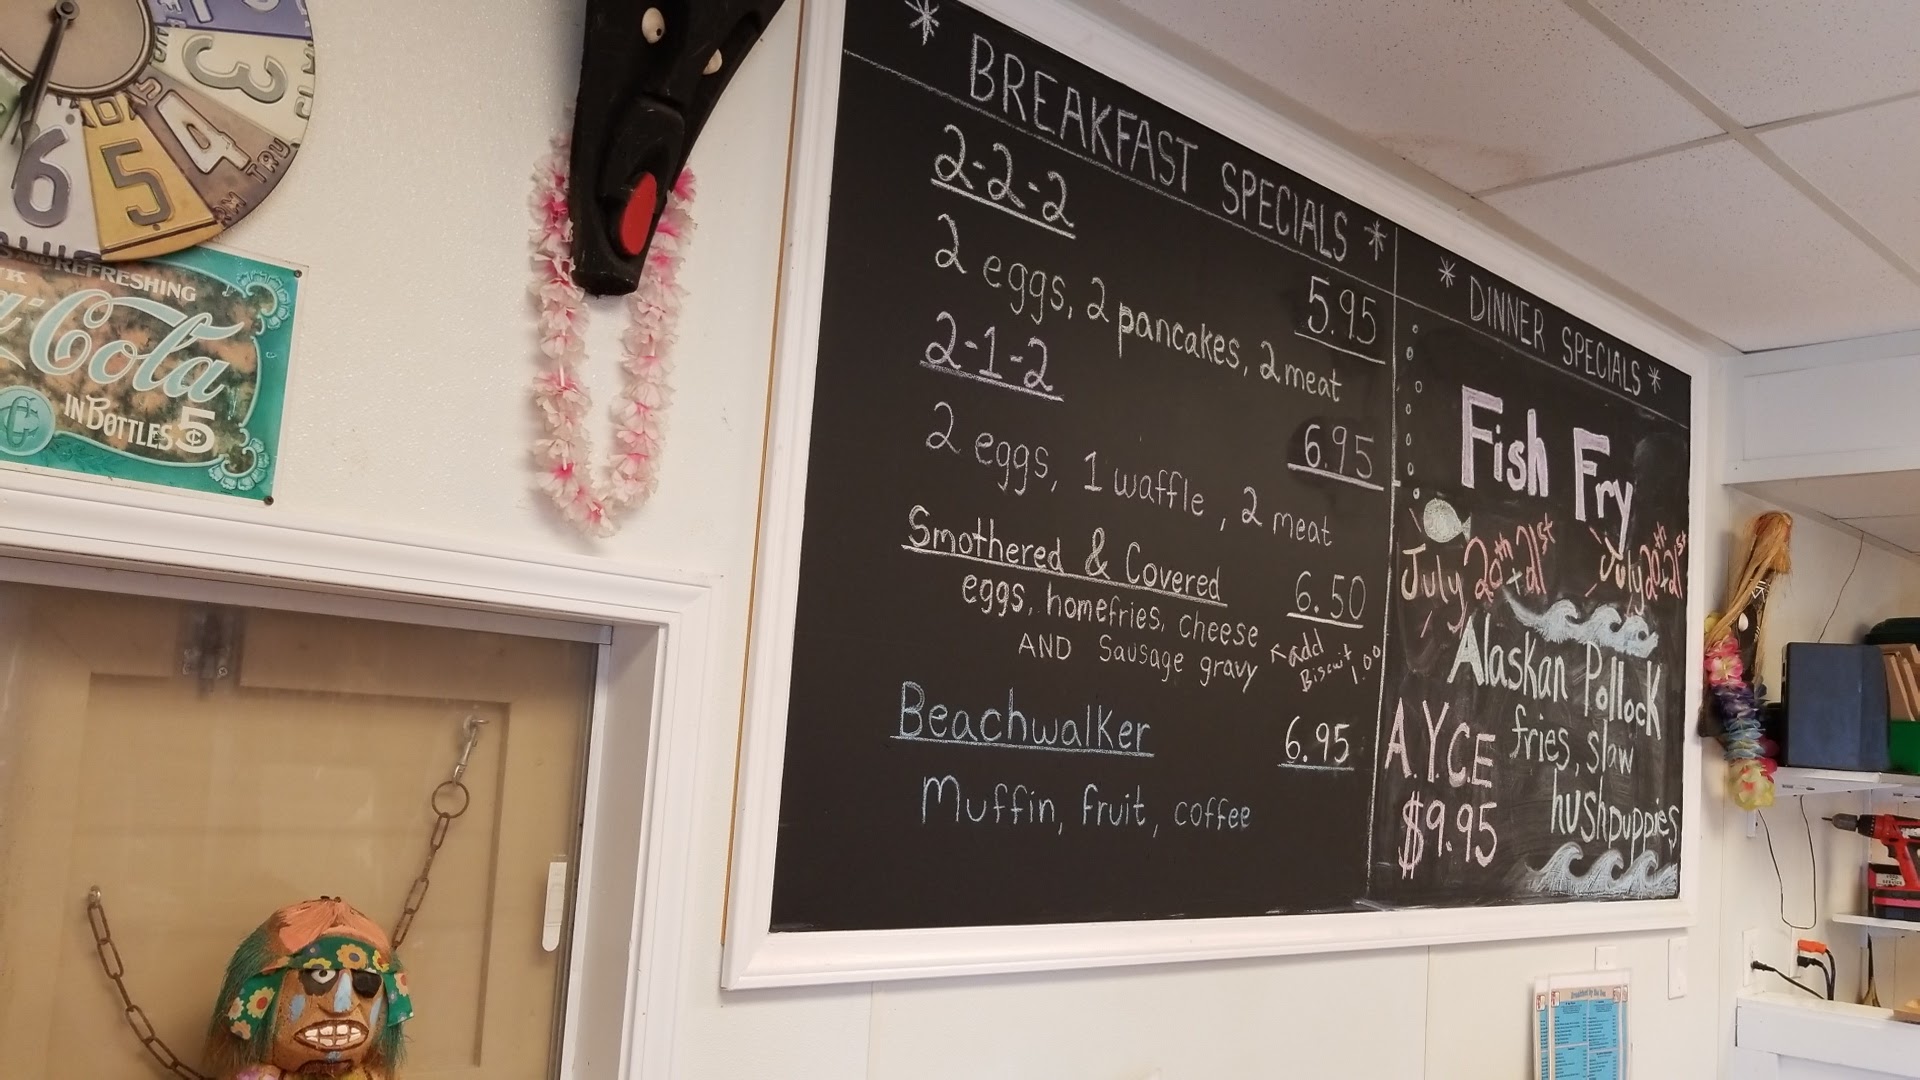 3
4
5
6
TRU
REFRESHING
Cola
IN BOTTLES 5¢
* BREAKFAST SPECIALS *
2-2-2
5.95
2 eggs, 2 pancakes, 2 meat
2-1-2
6.95
2 eggs, 1 waffle, 2 meat
Smothered & Covered
6.50
eggs, homefries, cheese
AND Sausage gravy
add
Biscuit
1.00
Beachwalker
6.95
Muffin, fruit, coffee
* DINNER SPECIALS *
Fish Fry
July 20th + 21st
July 20th + 21st
Alaskan Pollock
fries, slaw
hushpuppies
A.Y.C.E
$9.95